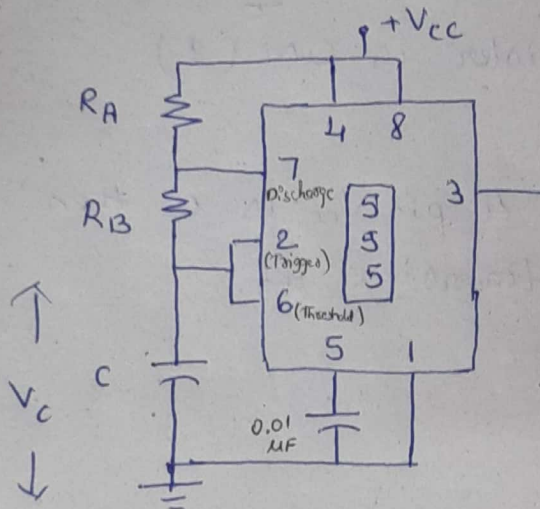 +Vcc
RA
4 8
7
Discharge
3
RB
5
5
5
2
(Trigger)
6 (Threshold)
5 1
C
Vc
0.01
μF